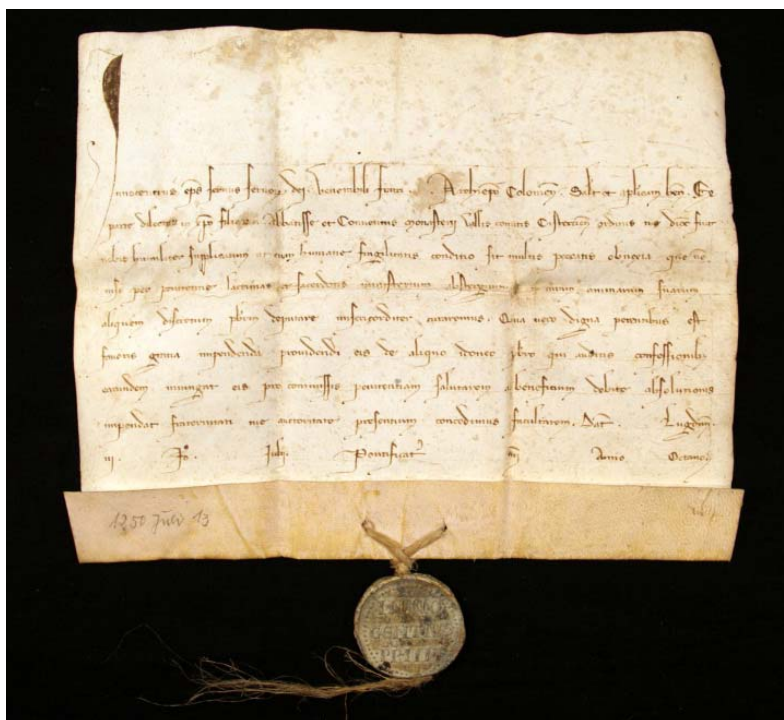 Innocentius eps seruus seruor dei. Venerabili fratri .. Archiepo Colonien. Salt et aplicam ben. Ex
parte dilectar in xpo filiar .. Abbatisse et Conuentus monasterii Vallis comitis Cistercien ordinis fuit
nobis humiliter supplicatum ut cum humane fragilitatis conditio sit multis peccatis obnoxia que
nisi per penitentie lacrimas et sacerdotis ministerium curam animarum suarum
aliquem discretum pbrm deputare misericorditer curaremus. Quia vero digna petentibus est
fauoris gratia impendenda prouidendi eis de aliquo idoneo pbro qui auditis confessionibus
earundem iniungat eis pro commissis penitentiam salutarem beneficium debite absolutionis
impendat fraternitati tue auctoritate presentium concedimus facultatem. Dat Lugdun.
iii Id. Julij. Pontificatus nri Anno Octauo
1250 Juli 13
INNO
CENTIVS
PP IIII